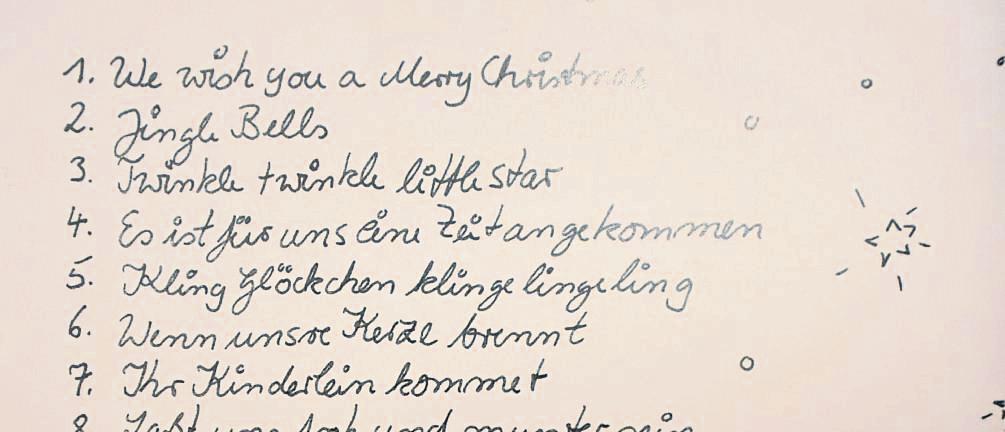 1. We wish you a Merry Christmas
2. Jingle Bells
3. Twinkle twinkle little star
4. Es ist für uns eine Zeit angekommen
5. Kling Glöckchen klingelingeling
6. Wenn unsre Kerze brennt
7. Ihr Kinderlein kommet
8. Laßt uns froh und munter sein